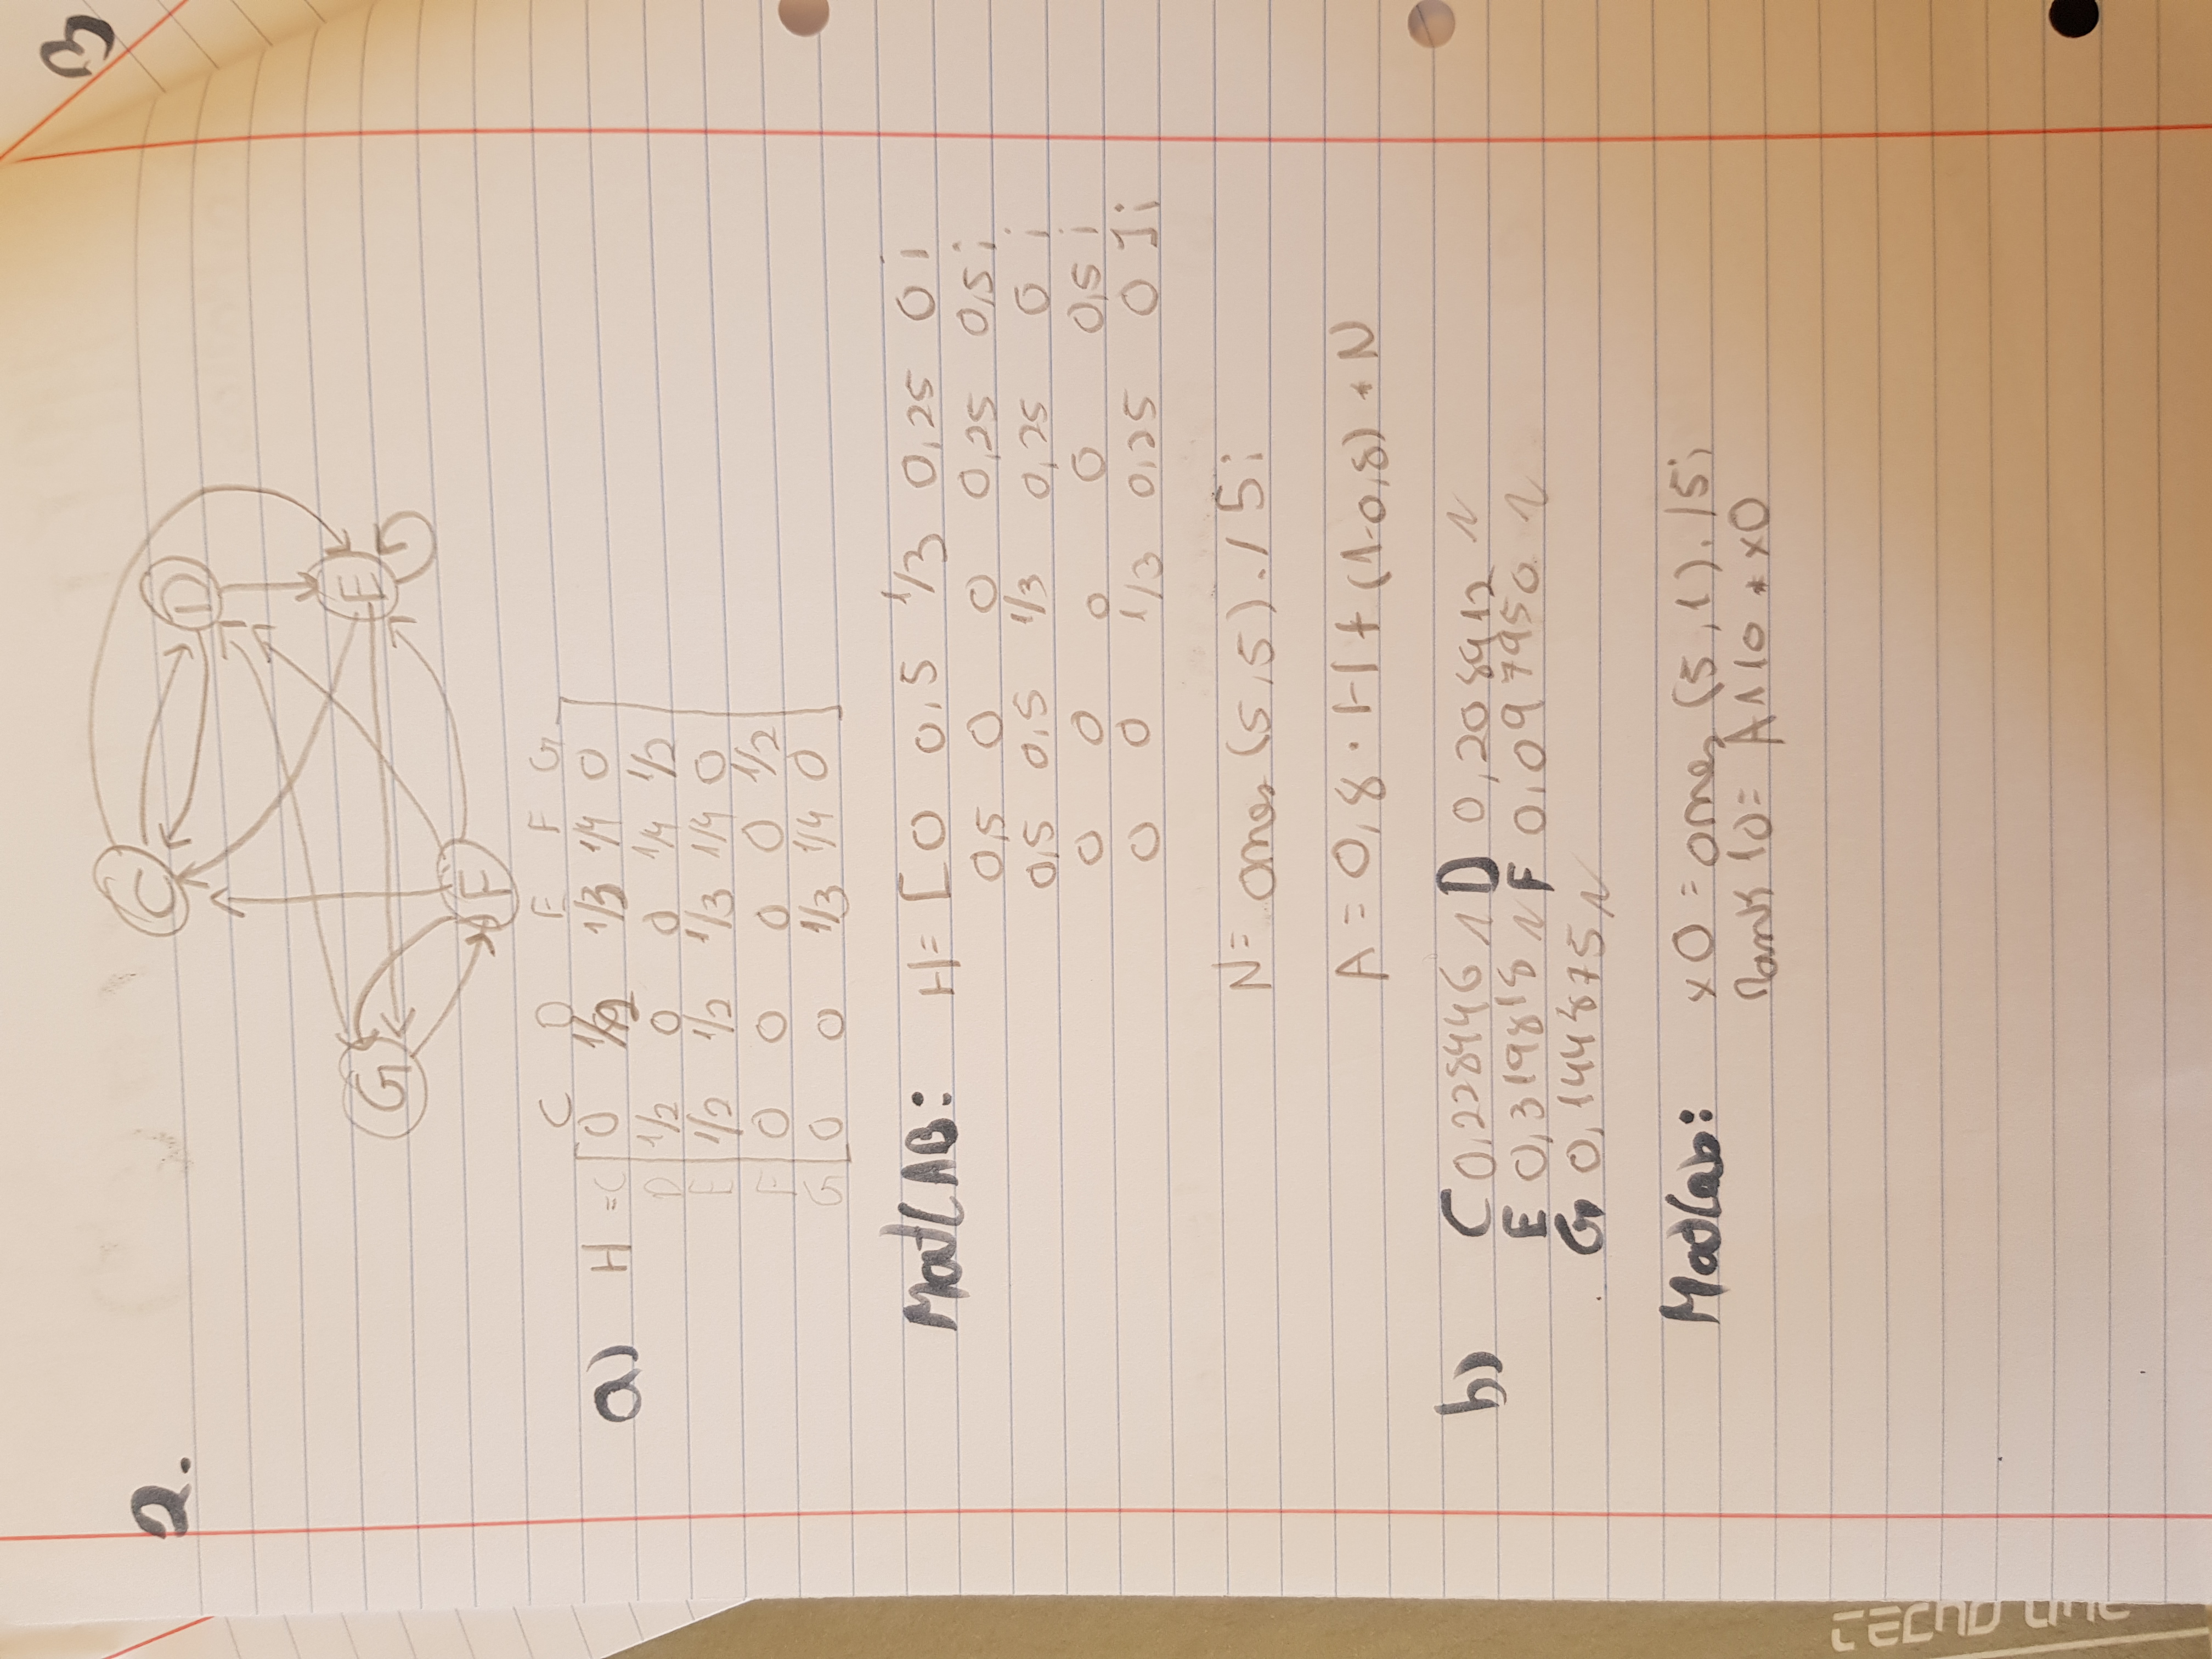 3
2.
C
D
G
E
F
C D E F G
a) H = C 0 1/2 1/3 1/4 0
D 1/2 0 0 1/4 1/2
E 1/2 1/2 1/3 1/4 0
F 0 0 0 0 1/2
G 0 0 1/3 1/4 0
MatLAB: H= [ 0 0,5 1/3 0,25 0 ;
0,5 0 0 0,25 0,5 ;
0,5 0,5 1/3 0,25 0 ;
0 0 0 0 0,5 ;
0 0 1/3 0,25 0 ];
N= ones (5,5) ./ 5;
A = 0,8 · H + (1-0,8) * N
b) C 0,228446 D 0,208912
E 0,319818 F 0,097950
G 0,144875
Matlab: x0 = ones (5,1) ./5;
Rank 10= A^10 * x0